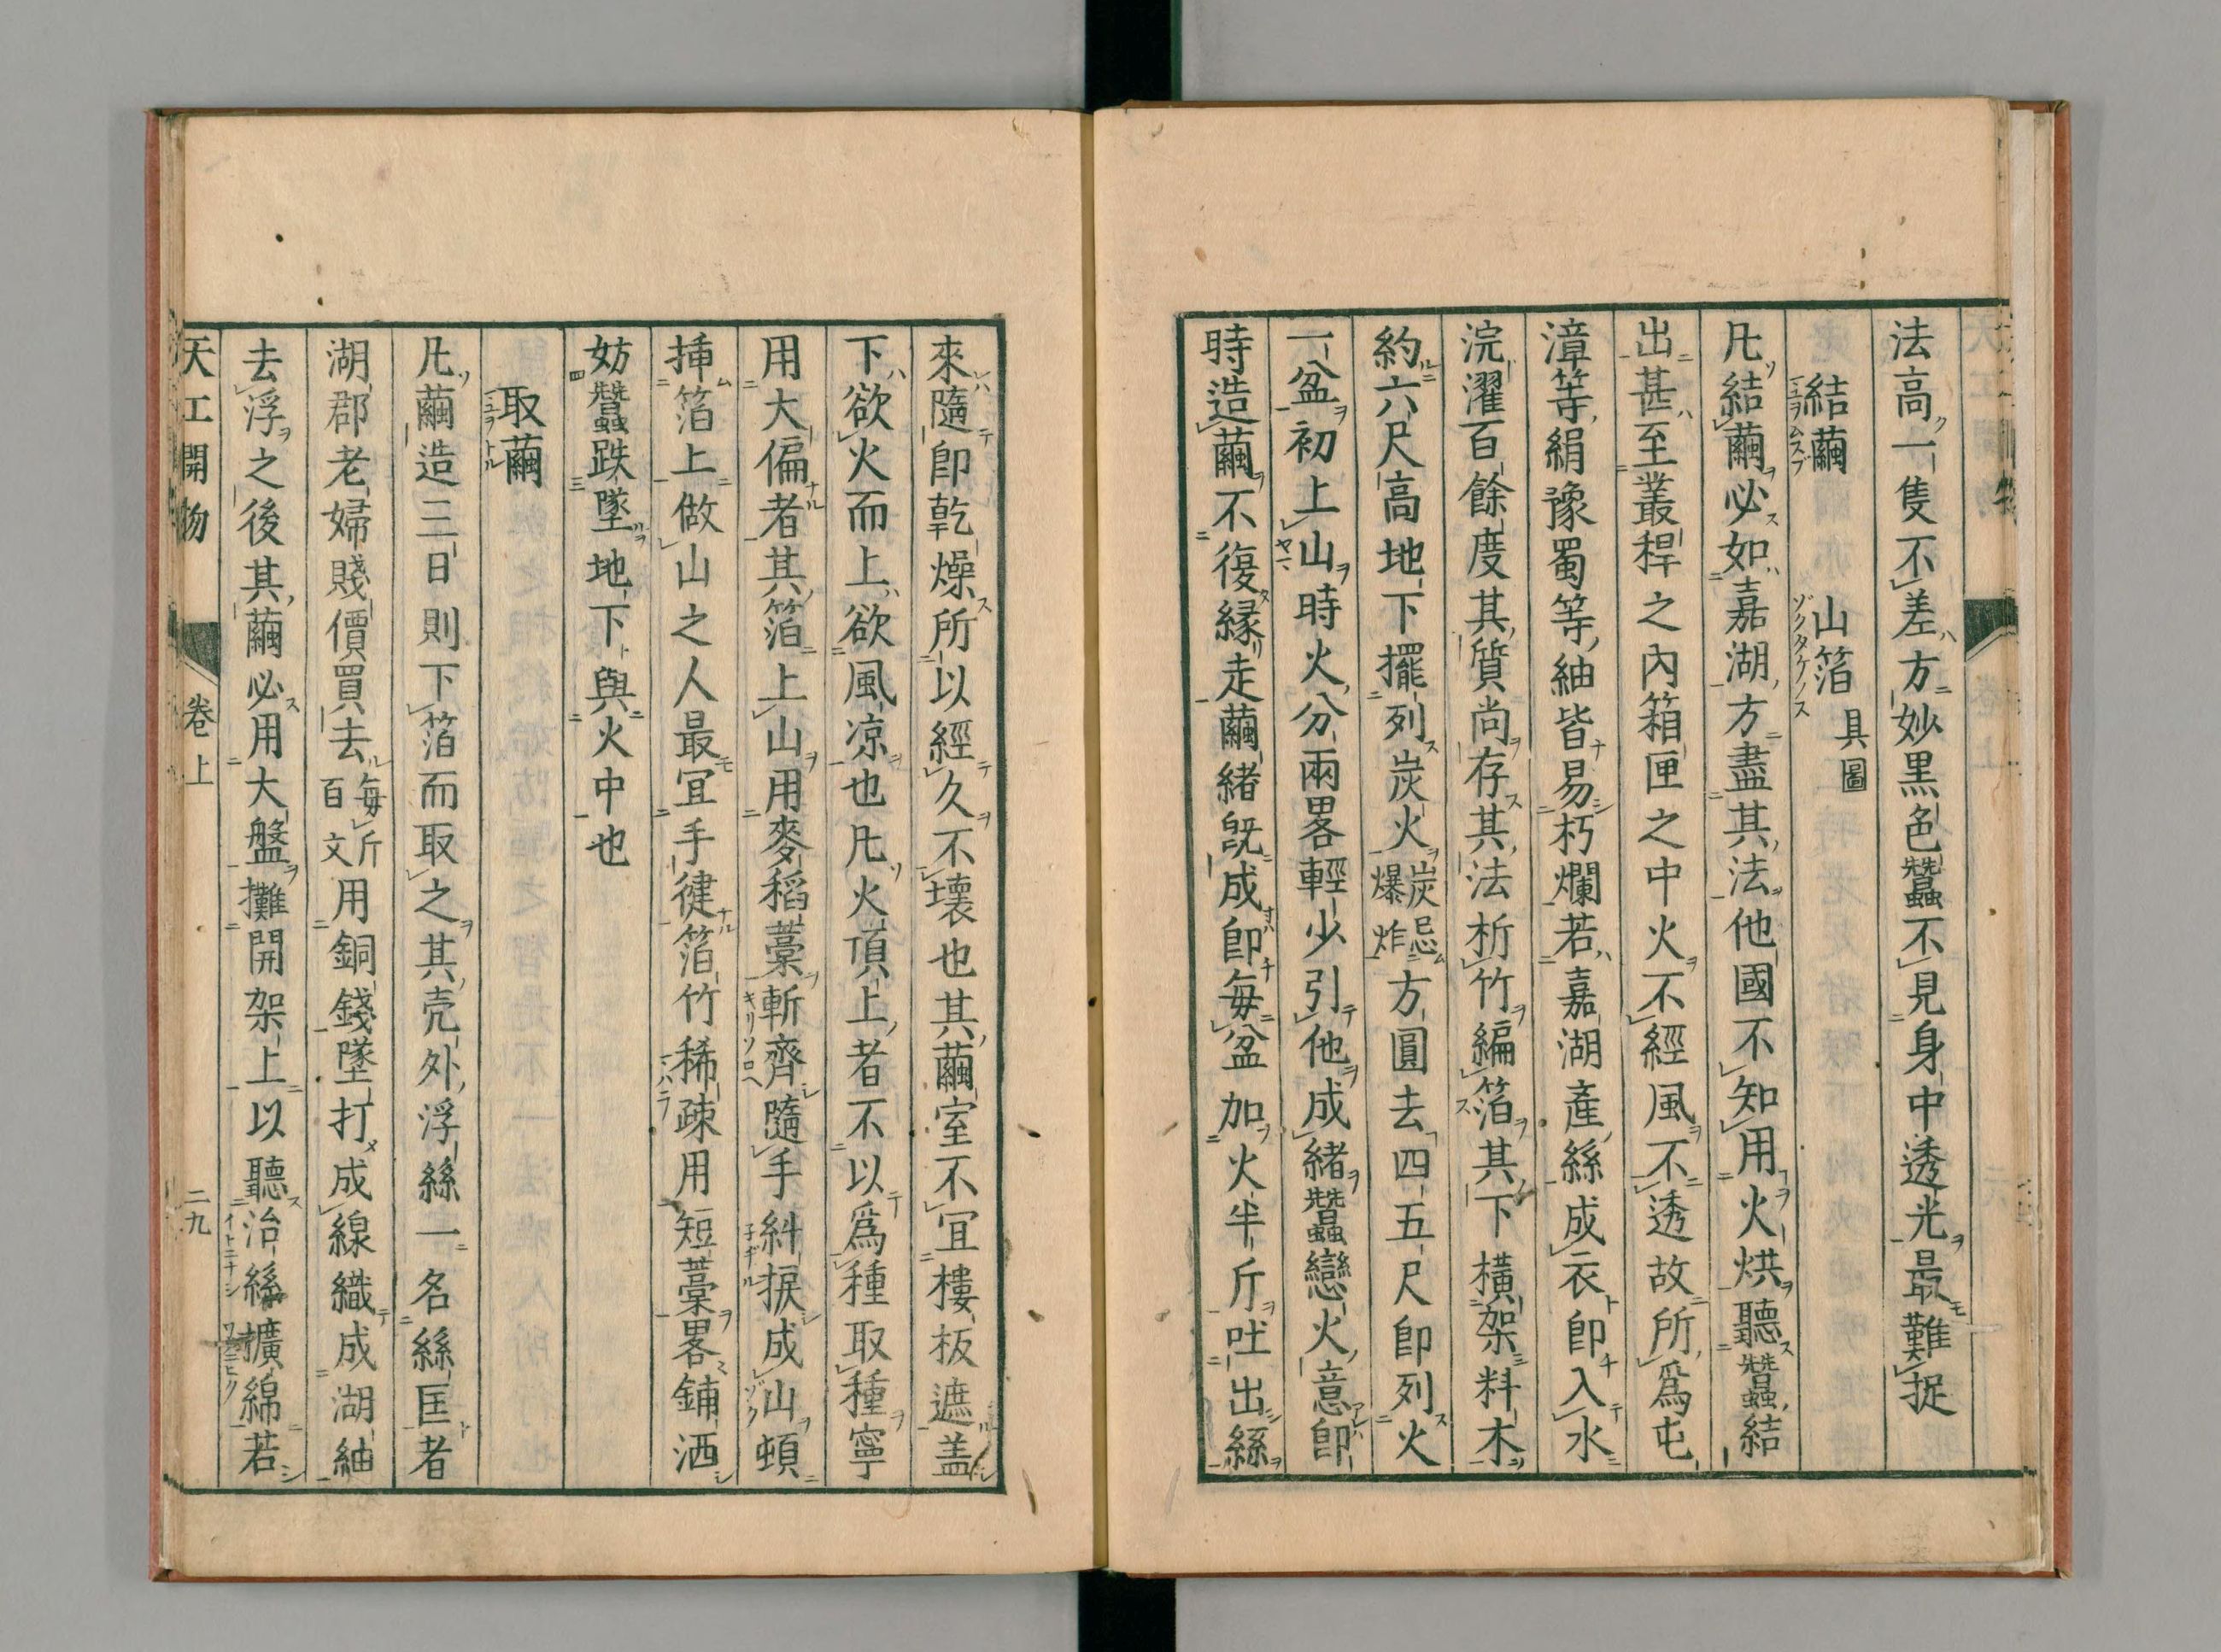 法高一隻不差方妙黒色蠶不見身中透光最難捉
結繭　山箔 具圖
凡結繭必如嘉湖方盡其法他國不知用火烘聽蠶結
出甚至叢稈之內箱匣之中火不經風不透故所爲屯
漳等絹豫蜀等紬皆易朽爛若嘉湖產絲成衣卽入水
浣濯百餘度其質尚存其法析竹編箔其下橫架料木
約六尺高地下擺列炭火炭忌爆炸方圓去四五尺卽列火
一盆初上山時火分兩畧輕少引他成緒蠶戀火意卽
時造繭不復縁走繭緒旣成卽每盆加火半斤吐出絲
來隨卽乾燥所以經久不壞也其繭室不宜樓板遮盖
下欲火而上欲風凉也凡火頂上者不以爲種取種寧
用大偏者其箔上山用麥稻藁斬齊隨手糾捩成山頓
揷箔上做山之人最宜手徤箔竹稀疎用短藁畧鋪洒
妨蠶跌墜地下與火中也
取繭
凡繭造三日則下箔而取之其壳外浮絲一名絲匡者
湖郡老婦賤價買去每斤百文用銅錢墜打成線織成湖紬
去浮之後其繭必用大盤攤開架上以聽治絲擴綿若
天工開物　卷上　二九